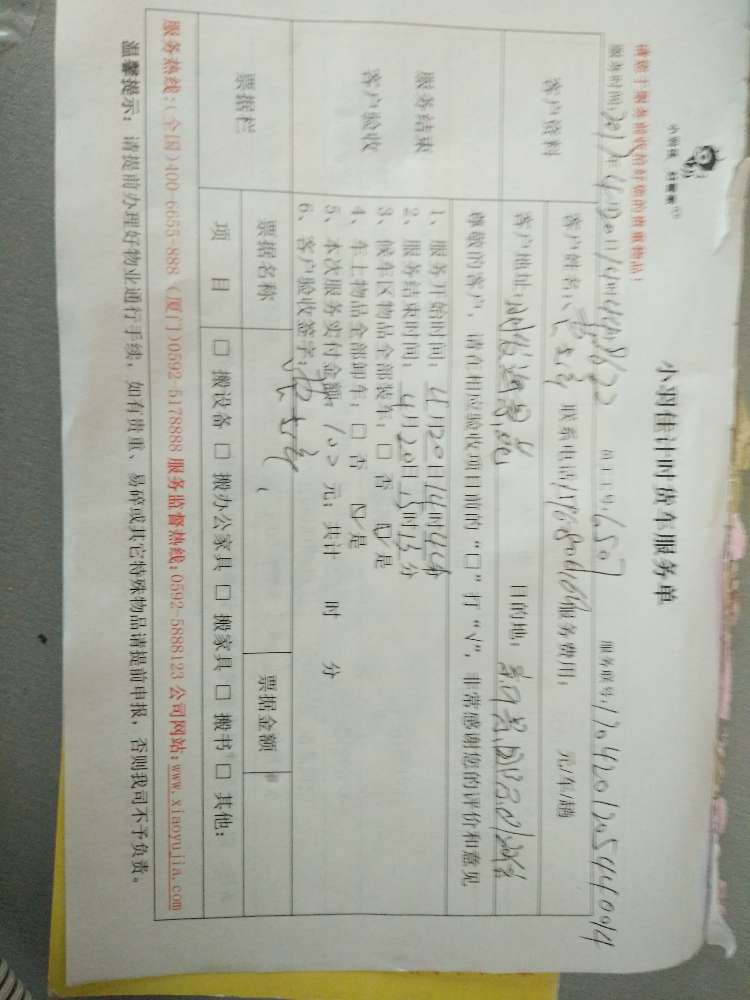 小羽佳计时货车服务单
小羽佳 好管家
请您于服务前收拾好您的贵重物品!
服务时间: 2017年4月20日14时44分 员工工号: 6507 服务联号: 170420120544094
客户资料
客户姓名: 联系电话 服务费用: 元/车/趟
客户地址: 目的地:
尊敬的客户,请在相应验收项目前的“□”打“√”,非常感谢您的评价和意见
服务结束
客户验收
1、服务开始时间: 4月20日14时44分
2、服务结束时间: 4月20日15时13分
3、候车区物品全部装车: □ 否 ☑ 是
4、车上物品全部卸车: □ 否 ☑ 是
5、本次服务实付金额: 100 元; 共计 时 分
6、客户验收签字:
票据栏
票据名称 票据金额
项 目 □ 搬设备 □ 搬办公家具 □ 搬家具 □ 搬书 □ 其他:
服务热线:(全国)400-6655-888 (厦门)0592-5178888 服务监督热线:0592-5888123 公司网站:www.xiaoyujia.com
温馨提示: 请提前办理好物业通行手续,如有贵重、易碎或其它特殊物品请提前申报,否则我司不予负责。